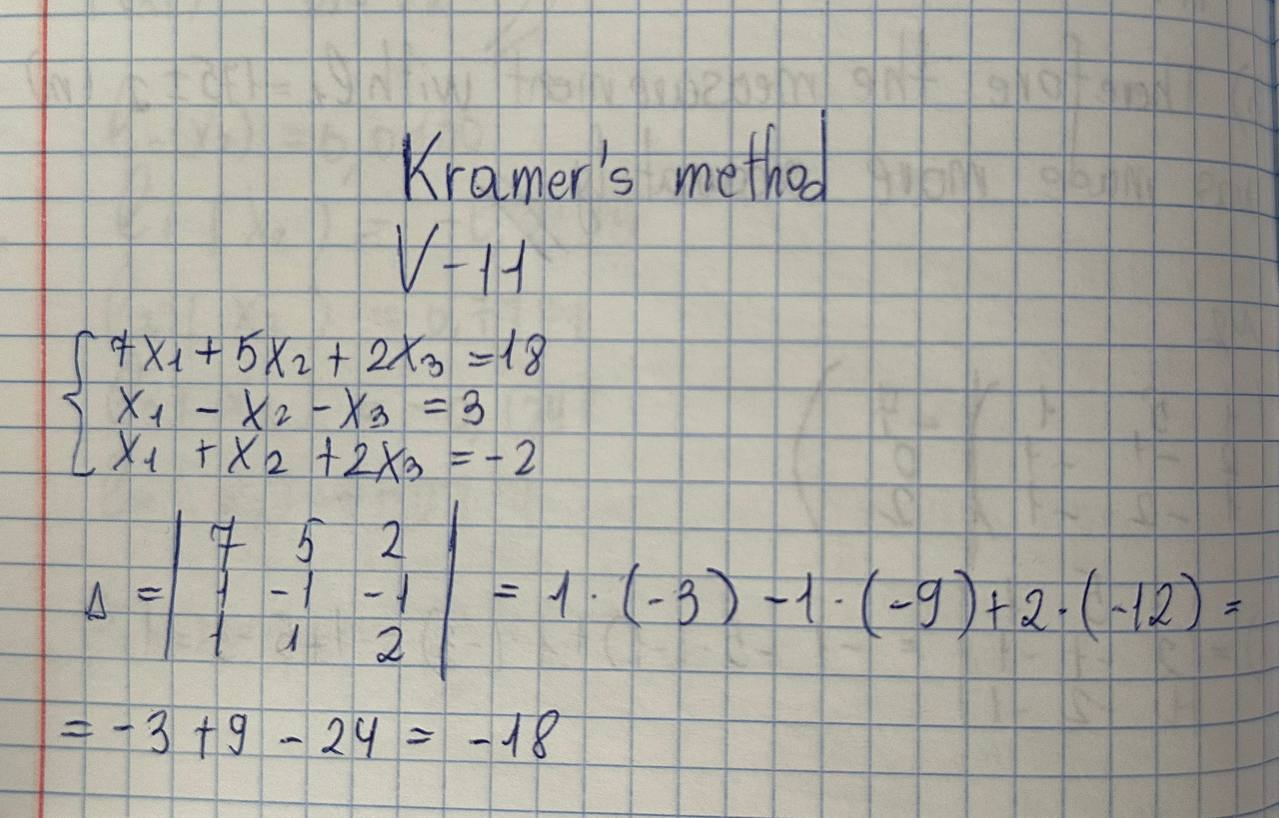 Kramer's method
V-11
7x1 + 5x2 + 2x3 = 18
x1 - x2 - x3 = 3
x1 + x2 + 2x3 = -2
7 5 2
Δ = 1 -1 -1 = 1·(-3) -1·(-9)+2·(-12) =
1 1 2
= -3 +9 - 24 = -18